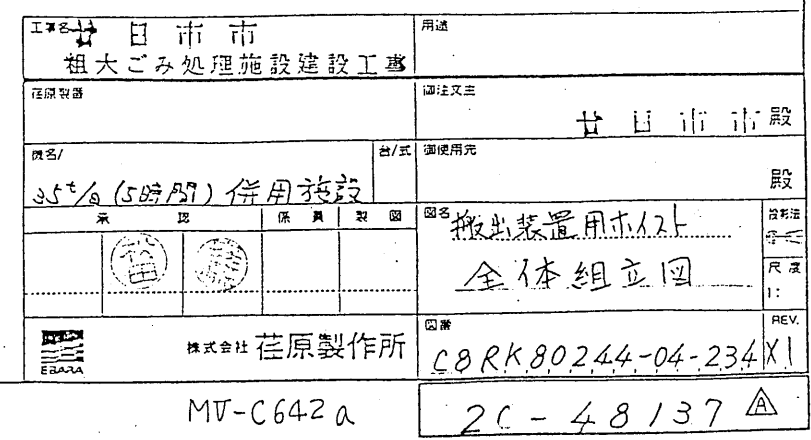 工事名 廿日市市
粗大ごみ処理施設建設工事
用途
荏原製番
御注文主
廿日市市殿
機名/
台/式
35t/日(5時間)併用施設
御使用先
殿
承認
係員
製図
図名 搬出装置用ホイスト
全体組立図
投影法
尺度
1:
EBARA
株式会社 荏原製作所
図番
C8RK80244-04-234
REV.
X1
MV-C642a
2C-48137 A